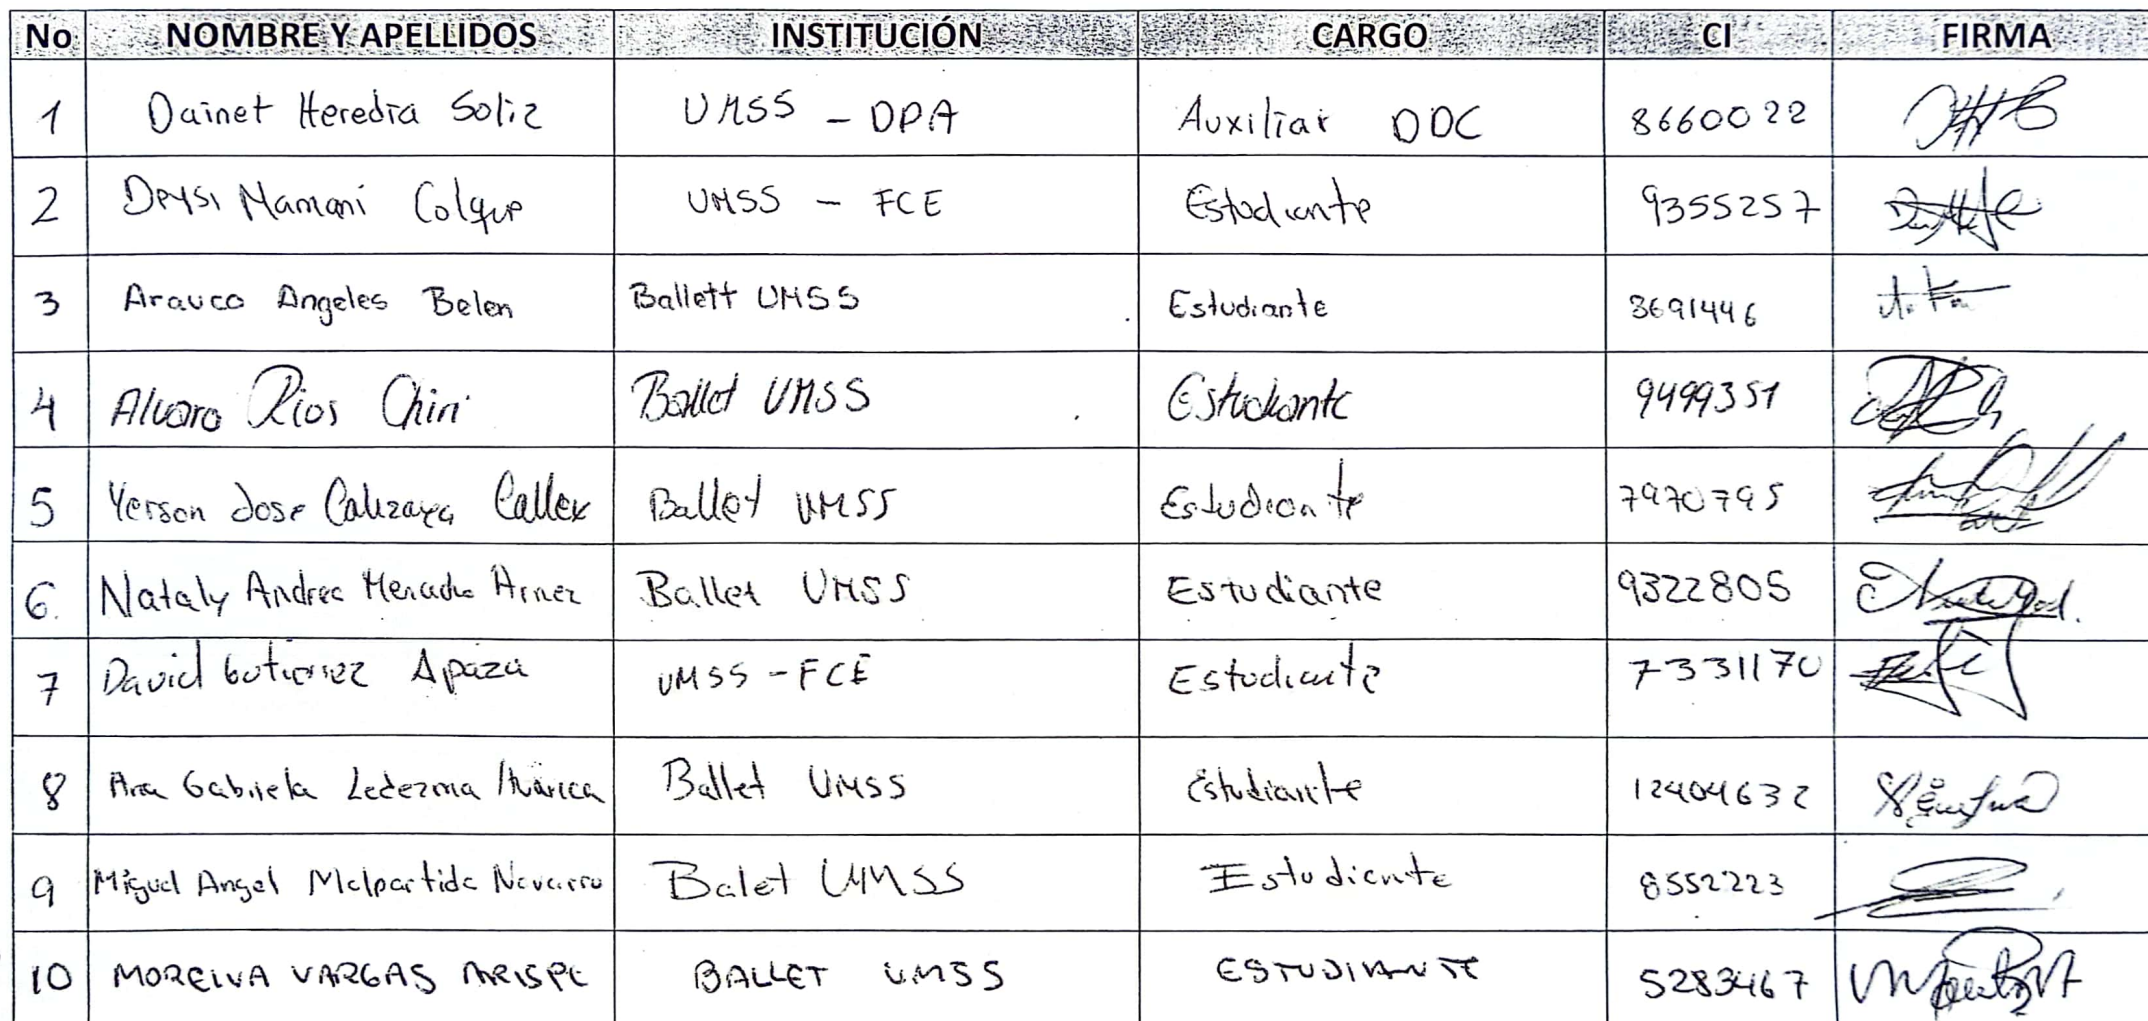 No NOMBRE Y APELLIDOS INSTITUCIÓN CARGO CI FIRMA
1 Dainet Heredia Soliz UMSS - DPA Auxiliar DDC 8660022
2 Deysi Mamani Colque UMSS - FCE Estudiante 9355257
3 Arauco Angeles Belen Ballett UMSS Estudiante 3691446
4 Alvaro Rios Chiri Ballet UMSS Estudiante 9499351
5 Yerson Jose Calizaya Ballet UMSS Estudiante 7970795
6. Nataly Andrea Menacho Arnez Ballet UMSS Estudiante 9322805
7 David Gutierrez Apaza UMSS - FCE Estudiante 7331170
8 Ana Gabriela Ledezma Ballet UMSS Estudiante 12404632
9 Miguel Angel Malpartida Navarro Balet UMSS Estudiante 8552223
10 MOREIVA VARGAS ARISPE BALLET UMSS ESTUDIANTE 5283467